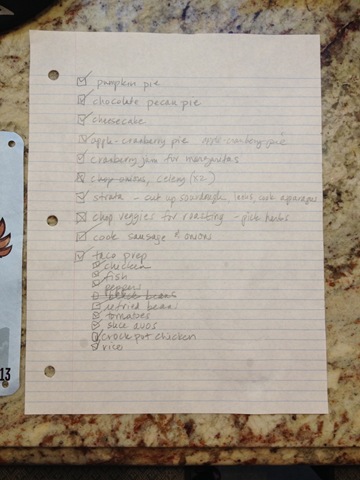 pumpkin pie
chocolate pecan pie
cheesecake
apple-cranberry pie
cranberry jam for margaritas
chop onions, celery (x2)
strata - cut up sourdough, leeks, cook asparagus
chop veggies for roasting - pick herbs
cook sausage & onions
taco prep
chicken
fish
peppers
black beans
refried beans
tomatoes
slice avos
crock pot chicken
rice
13